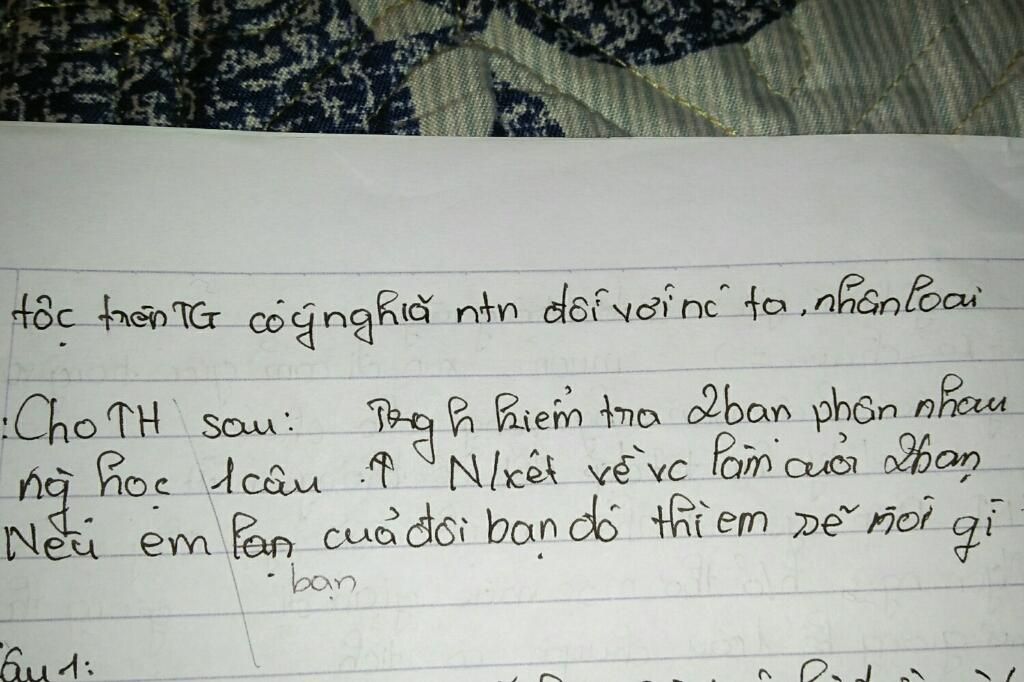 tộc trên TG có ý nghĩa ntn đối với nc ta, nhân loại
: Cho TH sau: Trog h kiểm tra 2 bạn phân nhau
ng học 1 câu. ↑ N/xét về vc làm của 2 bạn
Nếu em lạn của đôi bạn đó thì em sẽ nói gì
bạn
Câu 1: